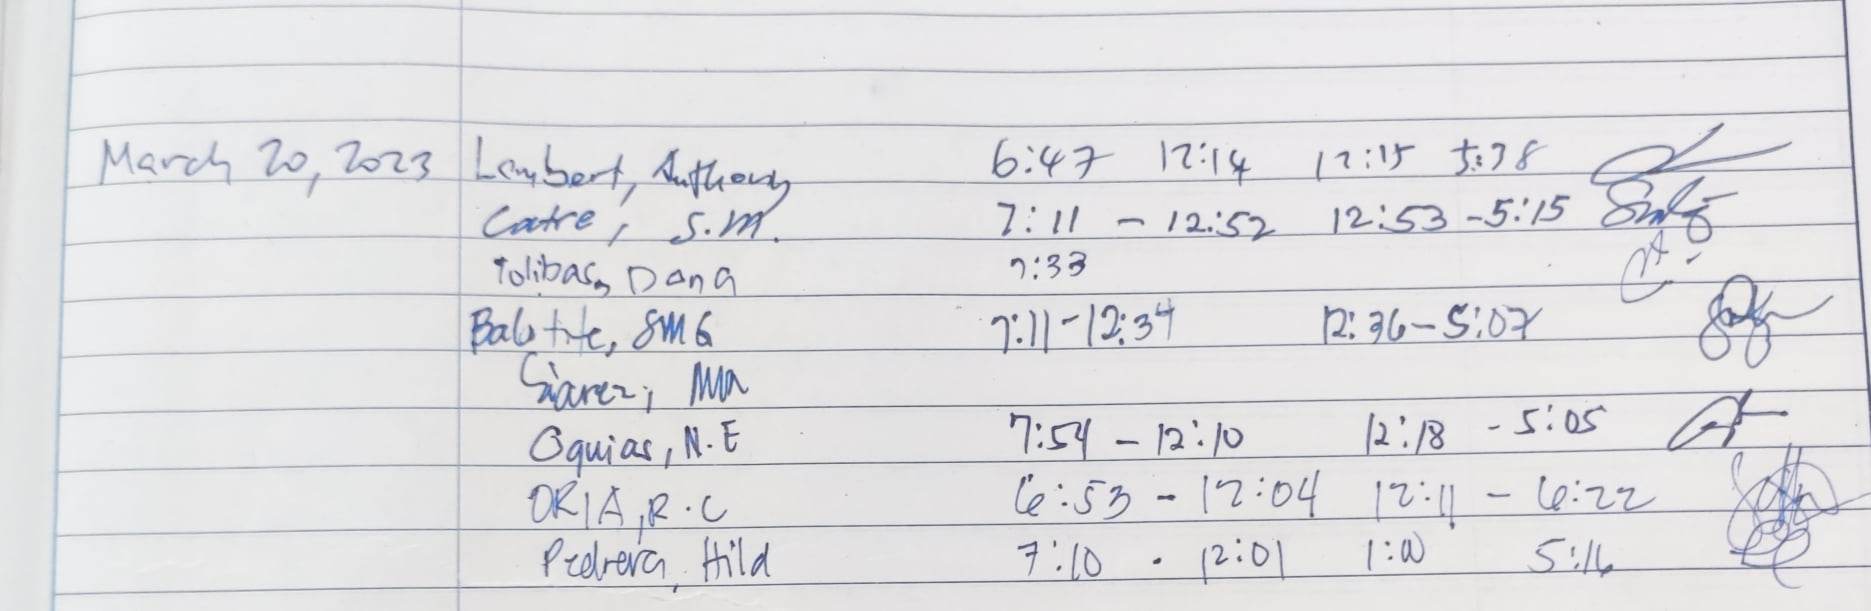 March 20, 2023 Lambert, Anthony 6:47 12:14 12:15 5:38
Catre, S.M. 7:11 - 12:52 12:53 - 5:15
Tolibas, Dana 7:33
Balutite, SMG 7:11 - 12:34 12:36 - 5:07
Suarez, MA
Oquias, N.E 7:54 - 12:10 12:18 - 5:05
ORIA, R.C 6:53 - 12:04 12:11 - 6:22
Pedrera, Hild 7:10 . 12:01 1:00 5:16